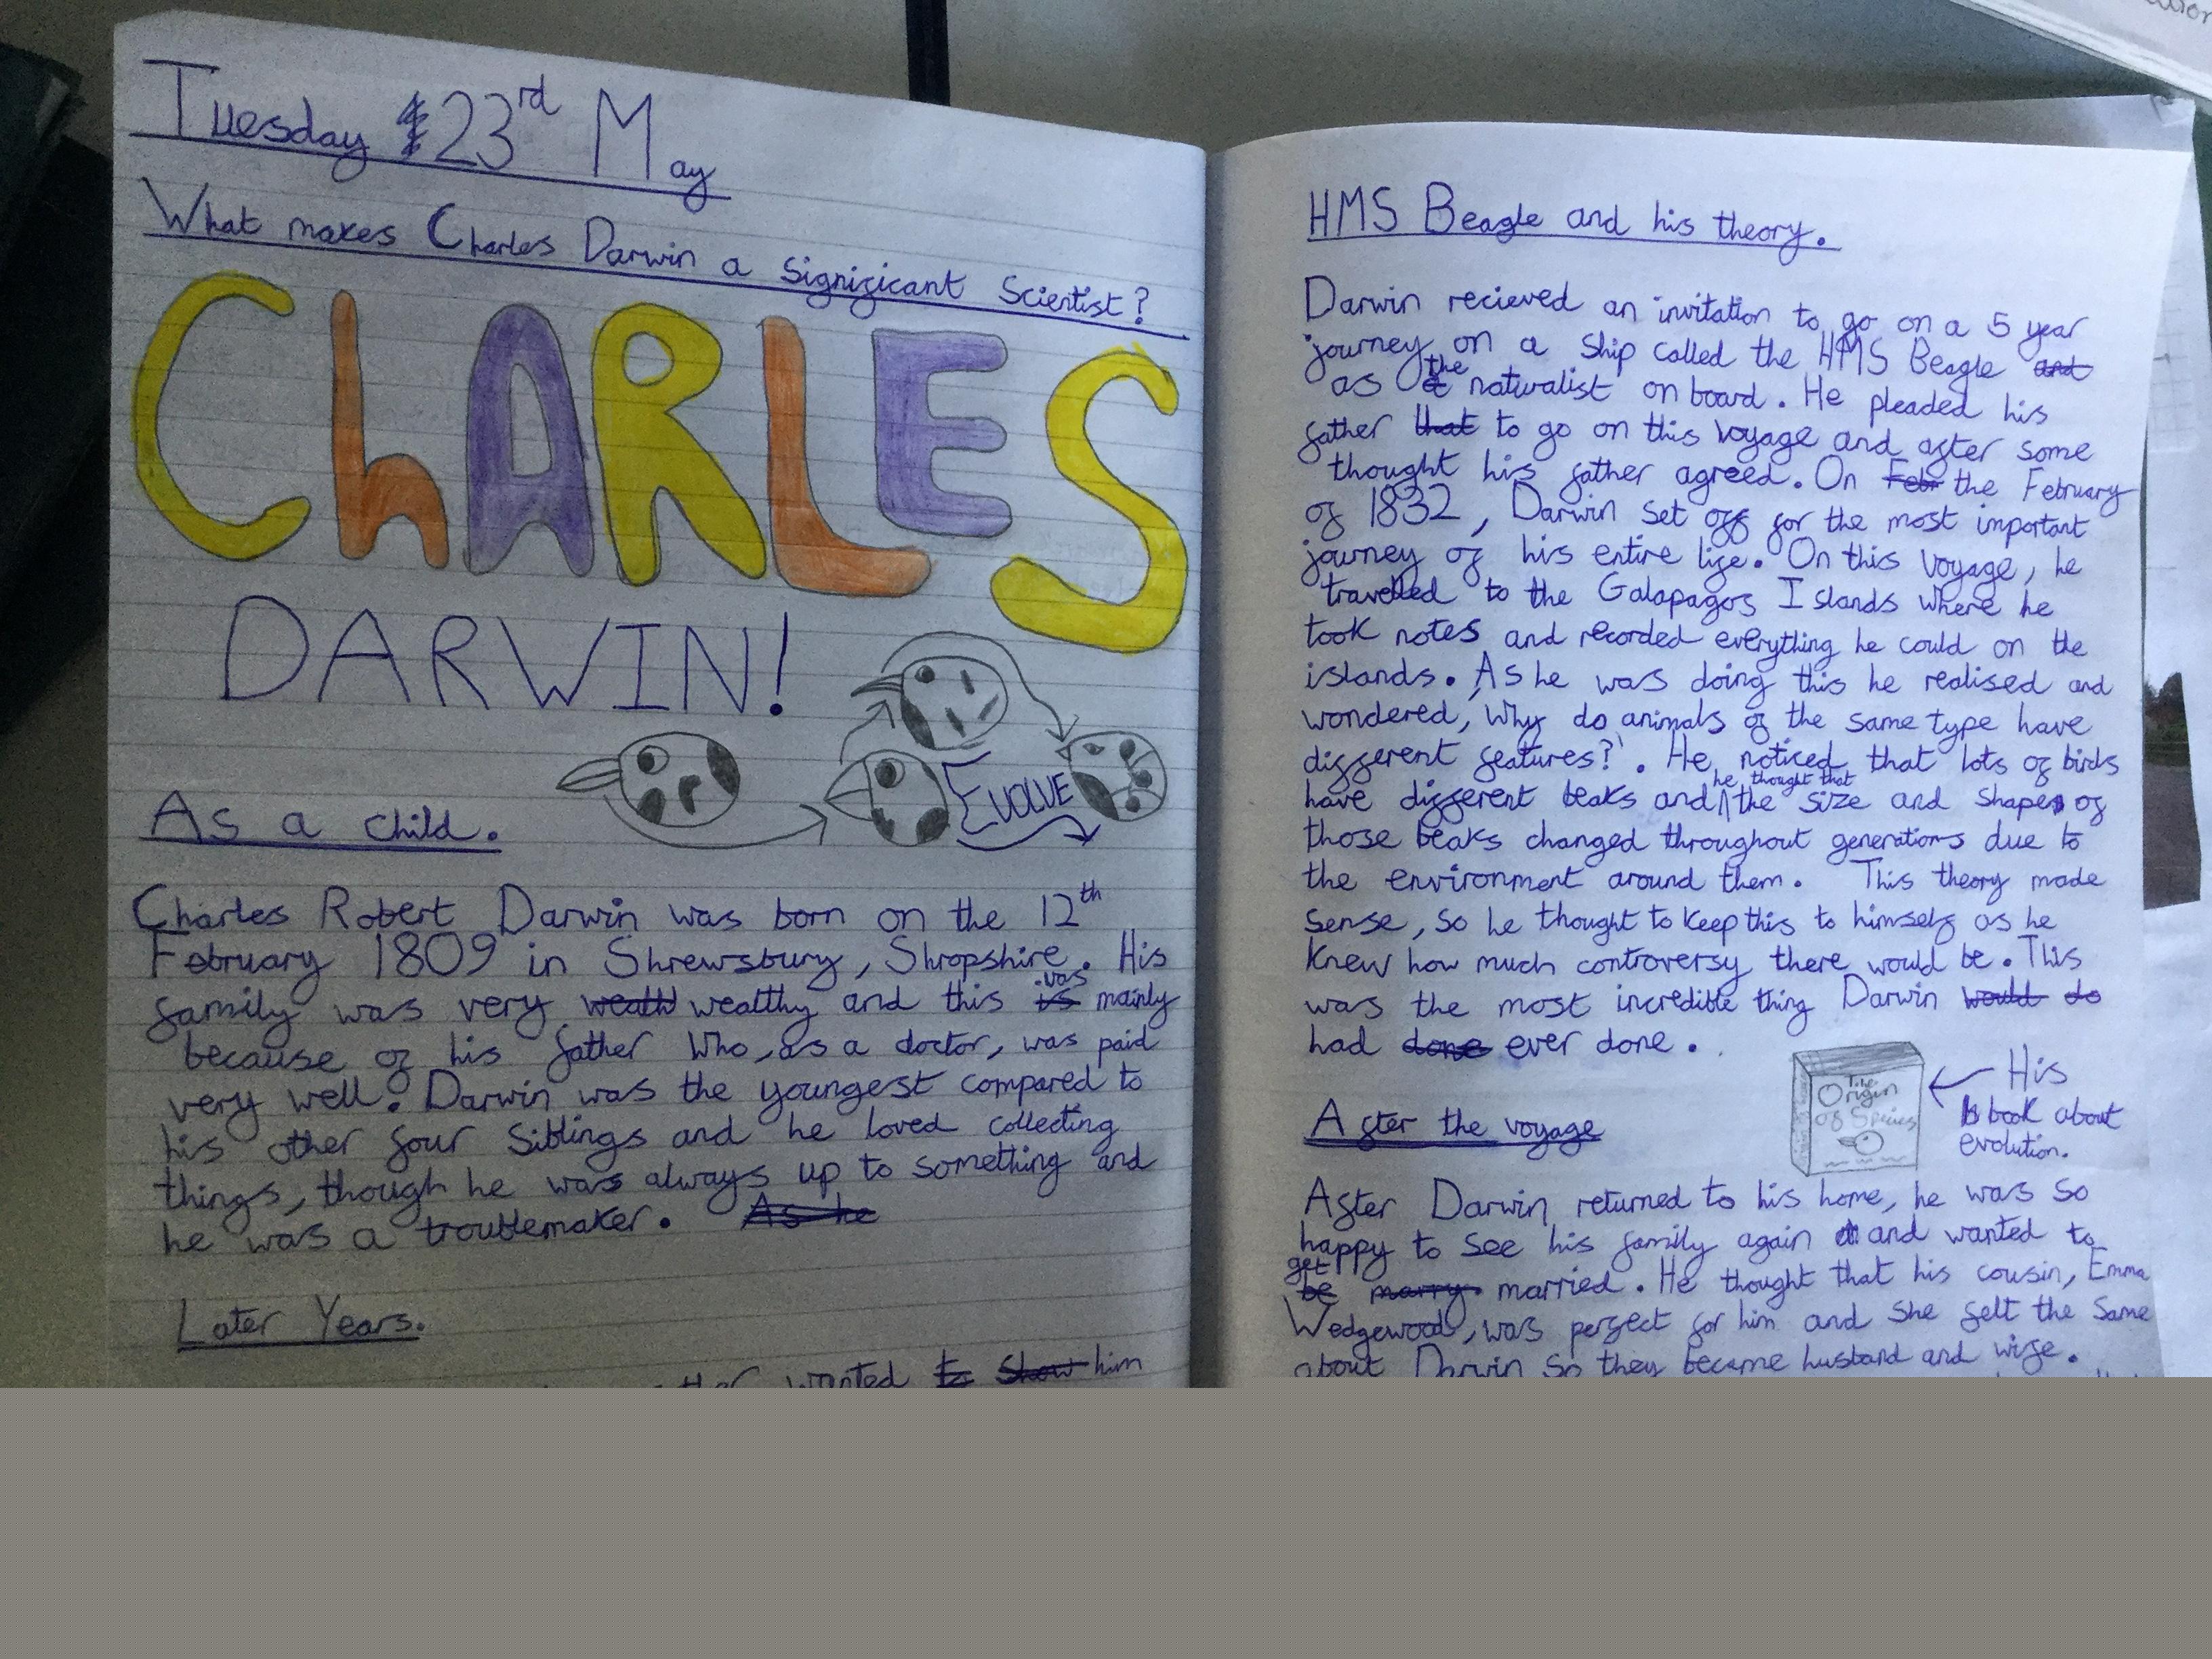 Tuesday 23rd May
What makes Charles Darwin a significant Scientist?
ChARLES
DARWIN!
EVOLVE
As a child.
Charles Robert Darwin was born on the 12th
February 1809 in Shrewsbury, Shropshire. His
family was very weath wealthy and this is was mainly
because of his father who, as a doctor, was paid
very well. Darwin was the youngest compared to
his other four siblings and he loved collecting
things, though he was always up to something and
he was a troublemaker. As he
Later Years.
wanted to show him
HMS Beagle and his theory.
Darwin recieved an invitation to go on a 5 year
journey on a ship called the HMS Beagle and
as a the naturalist on board. He pleaded his
father that to go on this voyage and after some
thought his father agreed. On Febr the February
of 1832, Darwin set off for the most important
journey of his entire life. On this voyage, he
travelled to the Galapagos Islands where he
took notes and recorded everything he could on the
islands. As he was doing this he realised and
wondered, 'Why do animals of the same type have
different features?'. He noticed that lots of birds
have different beaks and he thought that the size and shape of
those beaks changed throughout generations due to
the environment around them. This theory made
sense, so he thought to keep this to himself as he
knew how much controversy there would be. This
was the most incredible thing Darwin would do
had done ever done.
The
Origin
of Species
His
book about
evolution.
After the voyage
After Darwin returned to his home, he was so
happy to see his family again and wanted to
be get marry married. He thought that his cousin, Emma
Wedgewood, was perfect for him and she felt the same
about Darwin so they became husband and wife.